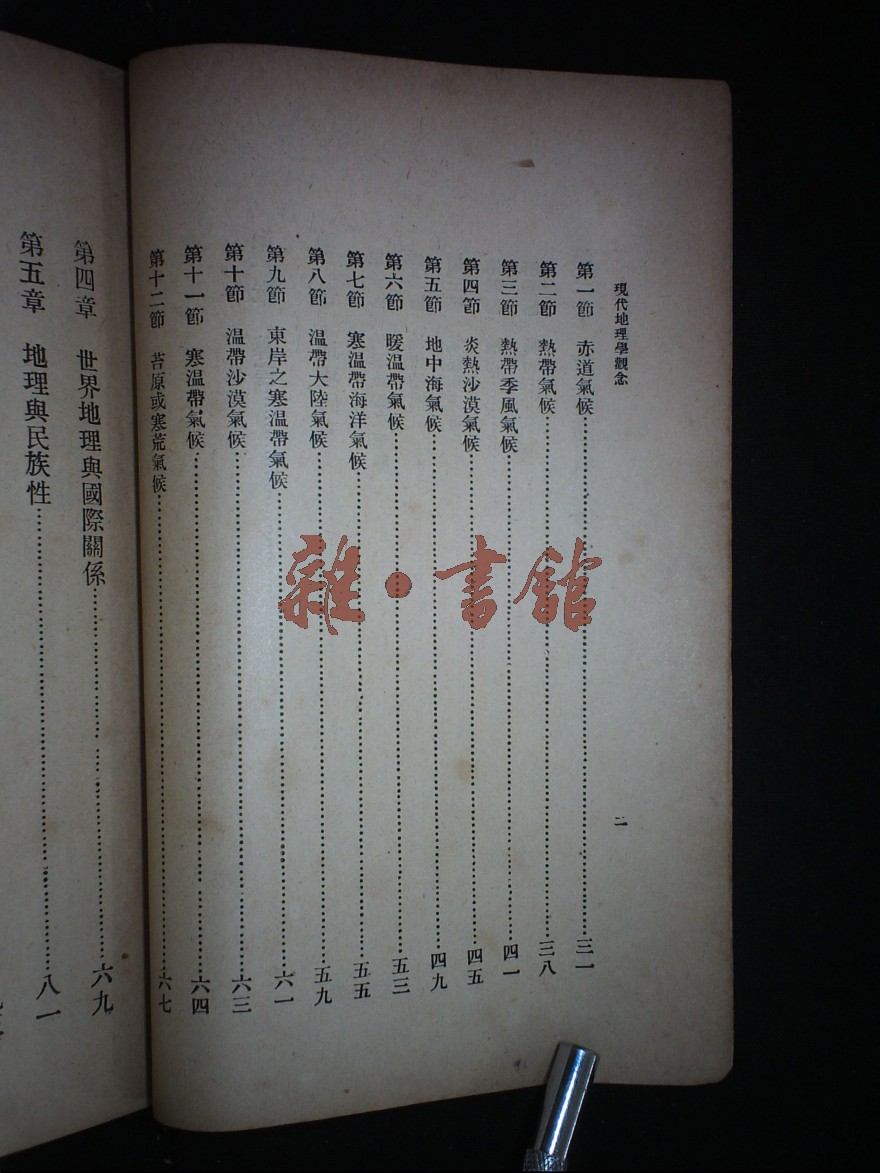 現代地理學觀念
二
第一節 赤道氣候 三一
第二節 熱帶氣候 三八
第三節 熱帶季風氣候 四一
第四節 炎熱沙漠氣候 四五
第五節 地中海氣候 四九
第六節 暖温帶氣候 五三
第七節 寒温帶海洋氣候 五五
第八節 温帶大陸氣候 五九
第九節 東岸之寒温帶氣候 六一
第十節 温帶沙漠氣候 六三
第十一節 寒温帶氣候 六四
第十二節 苔原或寒荒氣候 六七
第四章 世界地理與國際關係 六九
第五章 地理與民族性 八一
雜·書館